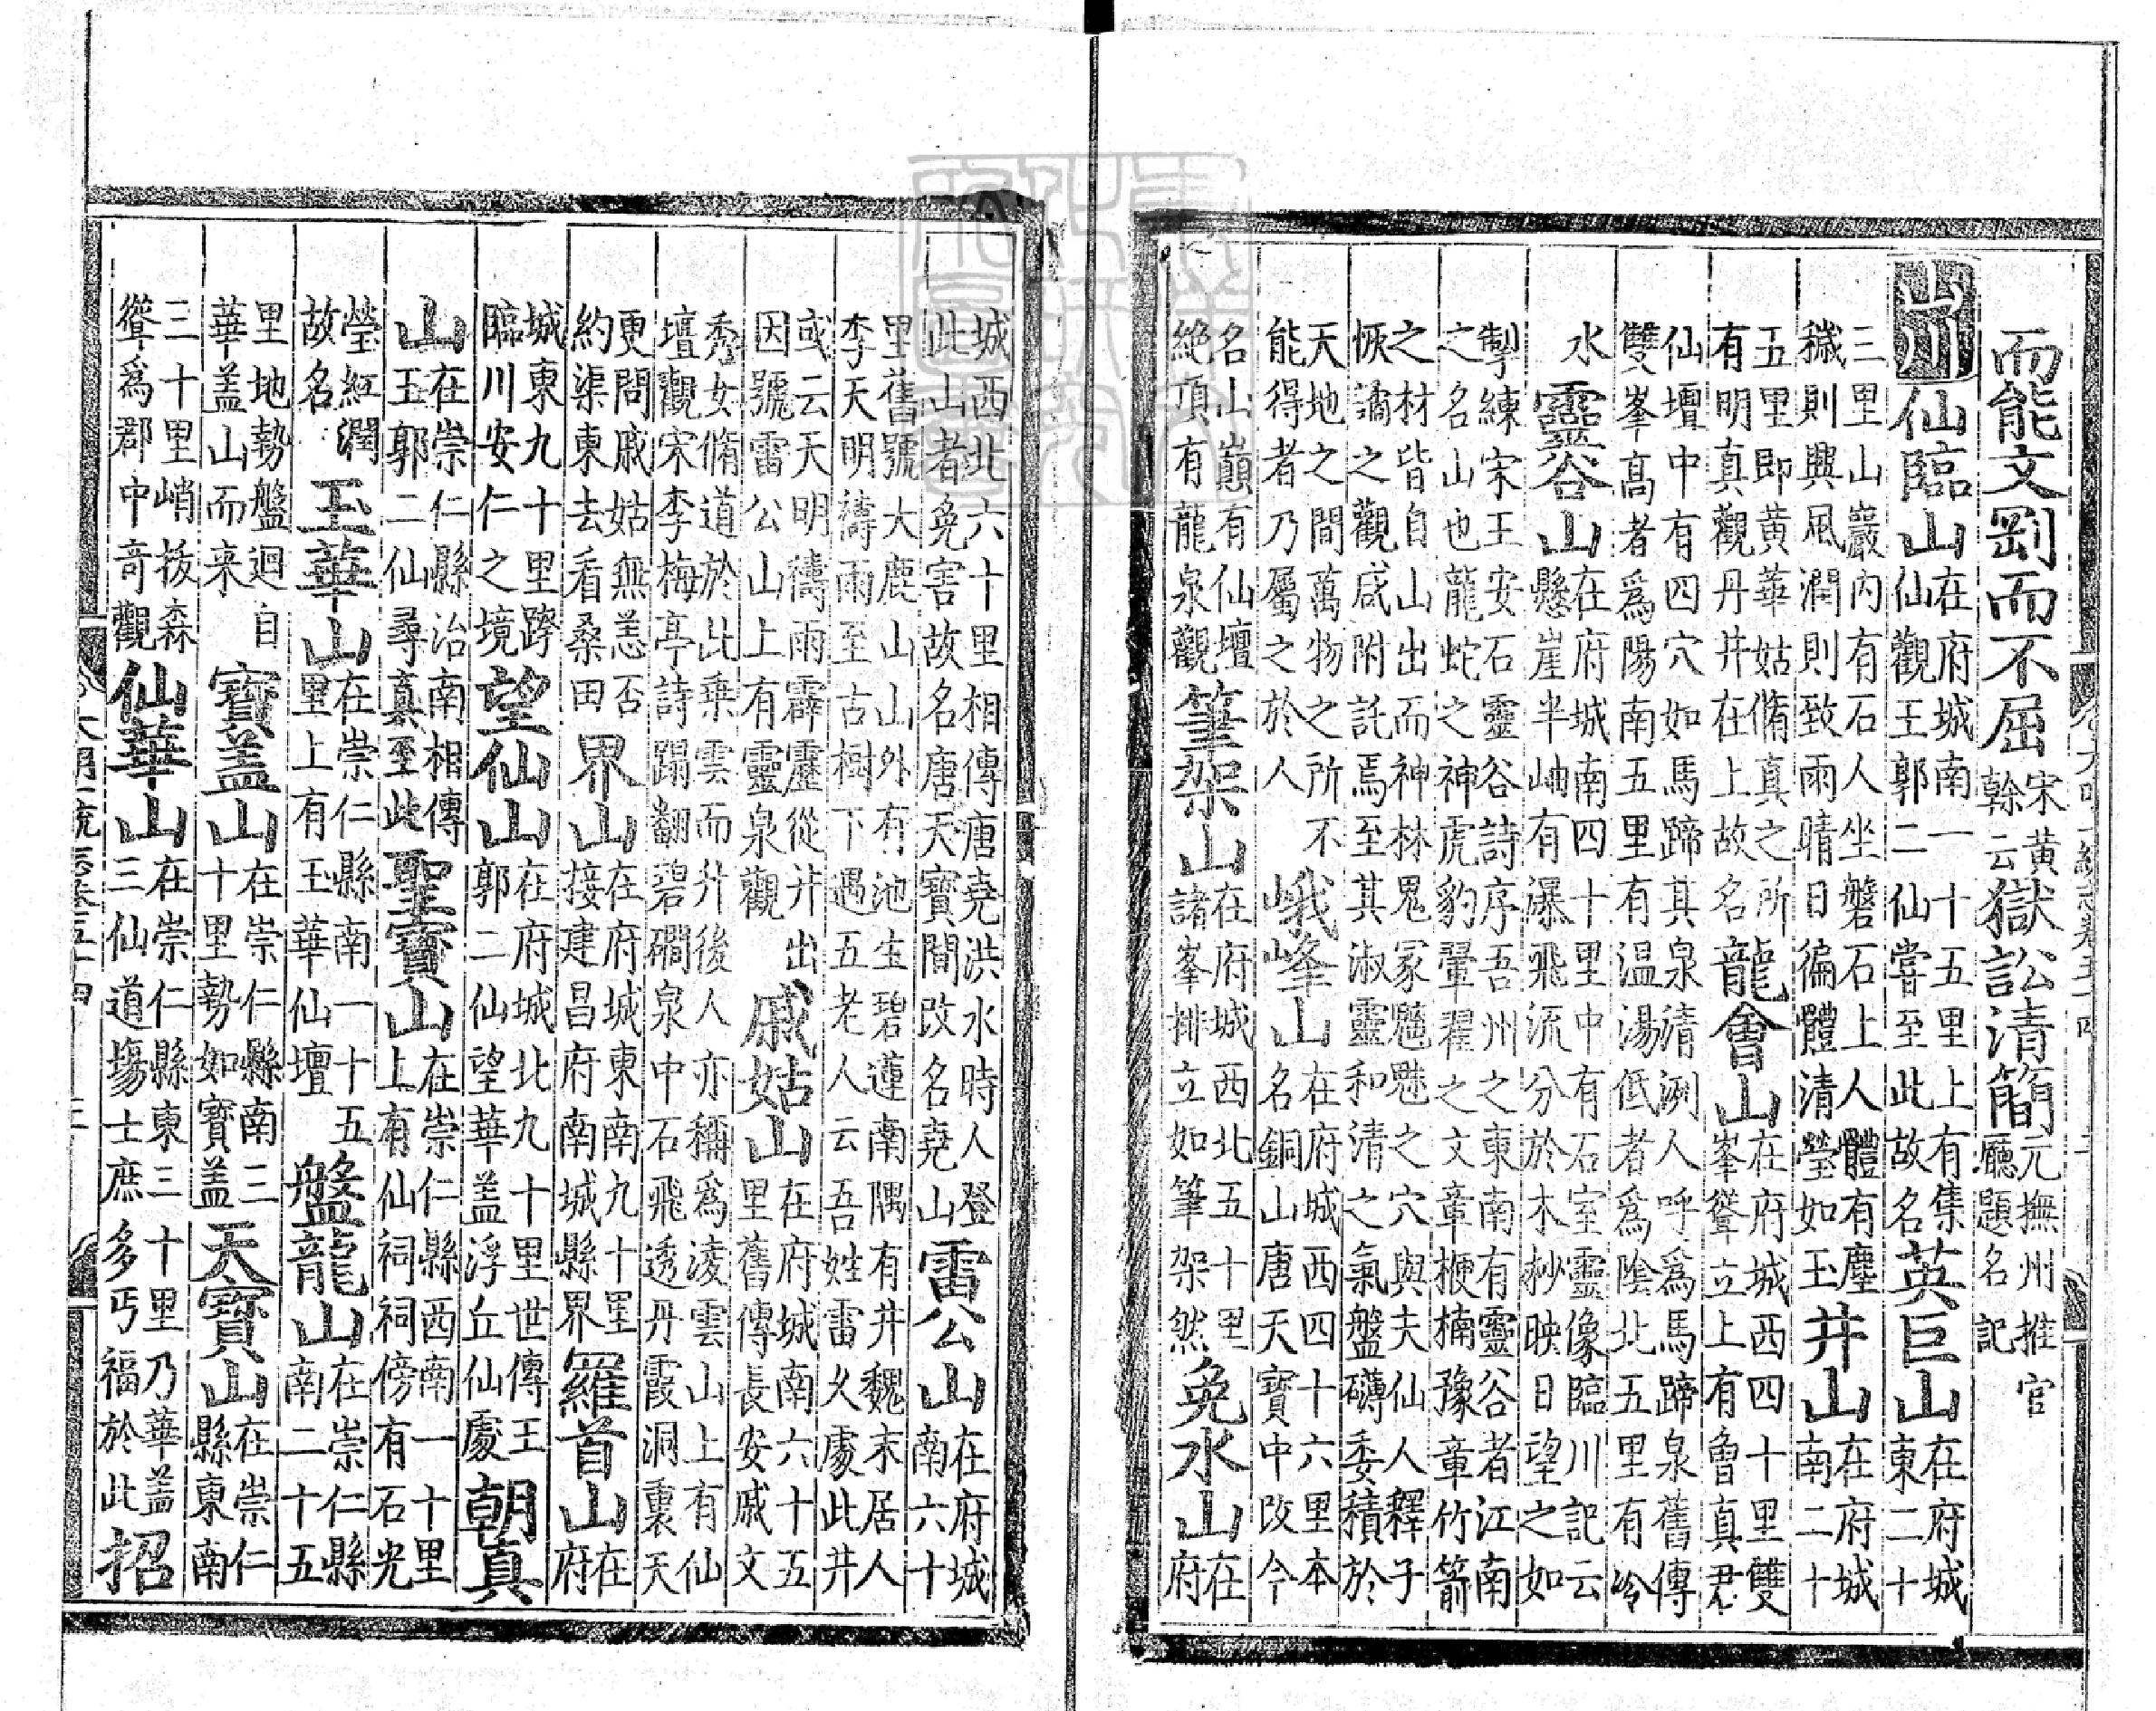 而能文剛而不屈宋黃榦云獄訟清簡元撫州推官廳題名記
山川仙臨山在府城南一十五里上有集仙觀王郭二仙嘗至此故名英巨山在府城東二十
三里山巖內有石人坐磐石上人體有塵穢則興風潤則致雨晴日徧體清瑩如玉井山在府城南二十
五里即黃華姑脩真之所有明真觀丹井在上故名龍會山在府城西四十里雙峯聳立上有魯真君
仙壇中有四穴如馬蹄其泉清洌人呼為馬蹄泉舊傳雙峯高者為陽南五里有温湯低者為陰北五里有冷
水靈谷山在府城南四十里中有石室靈像臨川記云懸崖半岫有瀑飛流分於木杪映日望之如
掣練宋王安石靈谷詩序吾州之東南有靈谷者江南之名山也龍蛇之神虎豹翬翟之文章楩楠豫章竹箭
之材皆自山出而神林鬼冢魑魅之穴與夫仙人釋子恢譎之觀咸附託焉至其淑靈和清之氣盤礴委積於
天地之間萬物之所不能得者乃屬之於人峨峰山在府城西四十六里本名銅山唐天寶中改今
名山巔有仙壇絶頂有龍泉觀筆架山在府城西北五十里諸峯排立如筆架然免水山在府
城西北六十里相傳唐堯洪水時人登此山者免害故名唐天寶間改名堯山雷公山在府城南六十
里舊號大鹿山山外有池生碧蓮南隅有井魏末居人李天明禱雨至古樹下遇五老人云吾姓雷乆處此井
或云天明禱雨霹靂從井出因號雷公山上有靈泉觀戚姑山在府城南六十五里舊傳長安戚文
秀女脩道於此乗雲而升後人亦稱為淩雲山上有仙壇觀宋李梅亭詩蹋翻碧磵泉中石飛透丹霞洞裏天
更問戚姑無恙否約渠東去看桑田界山在府城東南九十里接建昌府南城縣界羅首山在府
城東九十里跨臨川安仁之境望仙山在府城北九十里世傳王郭二仙望華盖浮丘仙處朝真
山在崇仁縣治南相傳王郭二仙尋真至此聖寶山在崇仁縣西南一十里上有仙祠祠傍有石光
瑩紅潤故名玉華山在崇仁縣南一十五里上有玉華仙壇盤龍山在崇仁縣南二十五
里地勢盤迴自華盖山而来寶盖山在崇仁縣南三十里勢如寶盖天寶山在崇仁縣東南
三十里峭拔森聳為郡中奇觀仙華山在崇仁縣東三十里乃華盖三仙道塲士庶多丐福於此招
大明一統志卷五十四